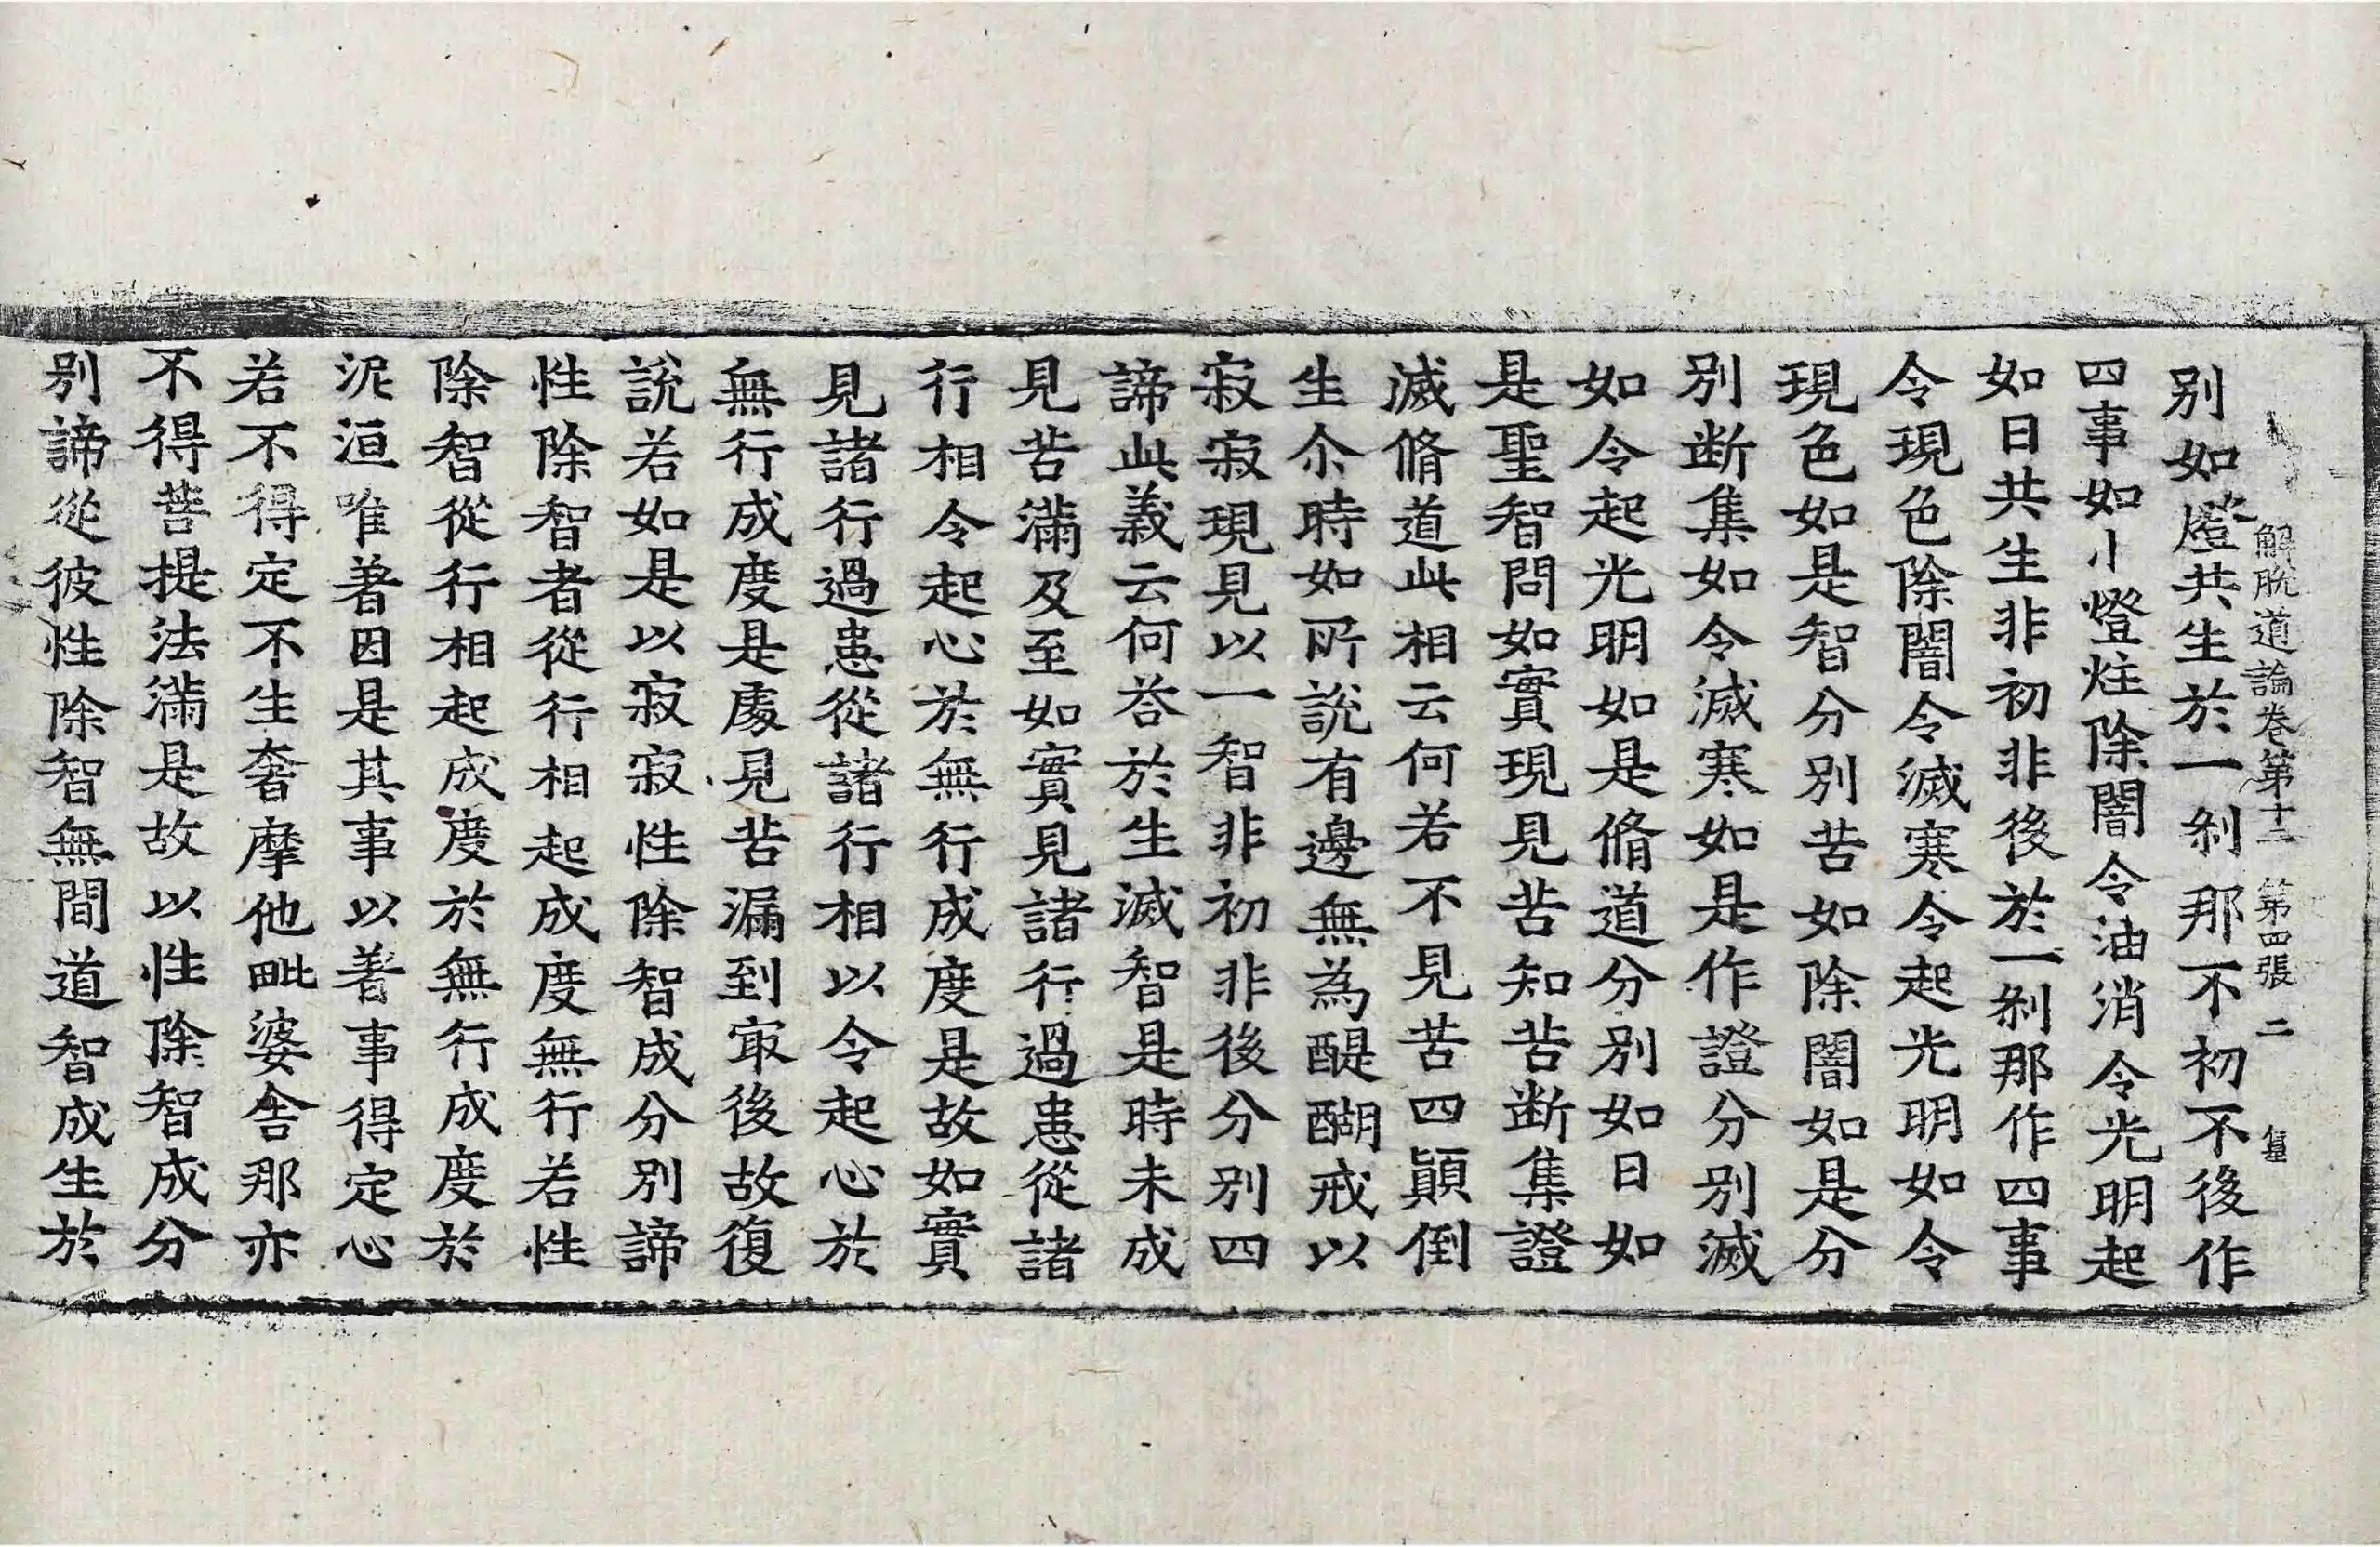 解脫道論卷第十二 第四張 二
别如燈共生於一剎那不初不後作
四事如小燈炷除闇令油消令光明起
如日共生非初非後於一剎那作四事
令現色除闇令滅寒令起光明如令
現色如是智分別苦如除闇如是分
別断集如令滅寒如是作證分別滅
如令起光明如是脩道分別如日如
是聖智問如實現見苦知苦断集證
滅脩道此相云何若不見苦四顛倒
生尒時如所說有邊無為醍醐戒以
寂寂現見以一智非初非後分別四
諦此義云何荅於生滅智是時未成
見苦滿及至如實見諸行過患從諸
行相令起心於無行成度是故如實
見諸行過患從諸行相以令起心於
無行成度是處見苦漏到㝡後故復
說若如是以寂寂性除智成分別諦
性除智者從行相起成度無行若性
除智從行相起成度於無行成度於
泥洹唯著因是其事以著事得定心
若不得定不生奢摩他毗婆舍那亦
不得菩提法滿是故以性除智成分
别諦從彼性除智無間道智成生於